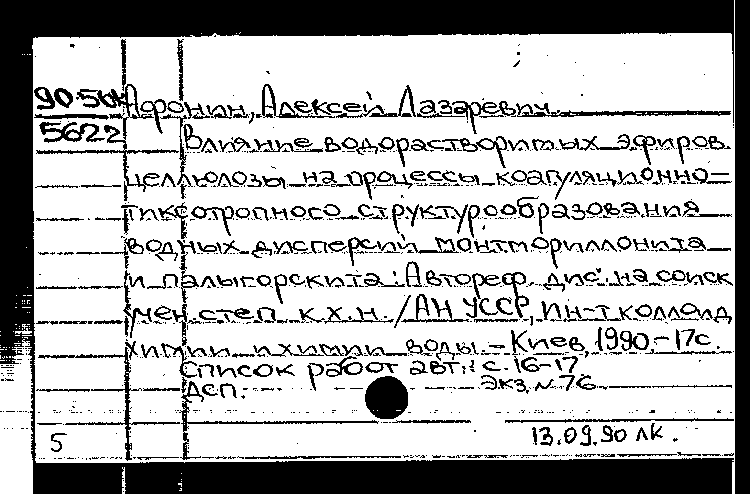 90-5бк Афонин, Алексей Лазаревич
5622 Влияние водорастворимых эфиров
целлюлозы на процессы коагуляционно-
тиксотропного структурообразования
водных дисперсий монтмориллонита
и палыгорскита: Автореф. дис. на соиск
учен. степ. к.х.н. / АН УССР, Ин-т коллоид
химии и химии воды. - Киев, 1990. - 17с.
Список работ авт.: с. 16-17
ДСП. Экз. № 76
5 13.09.90 ЛК.